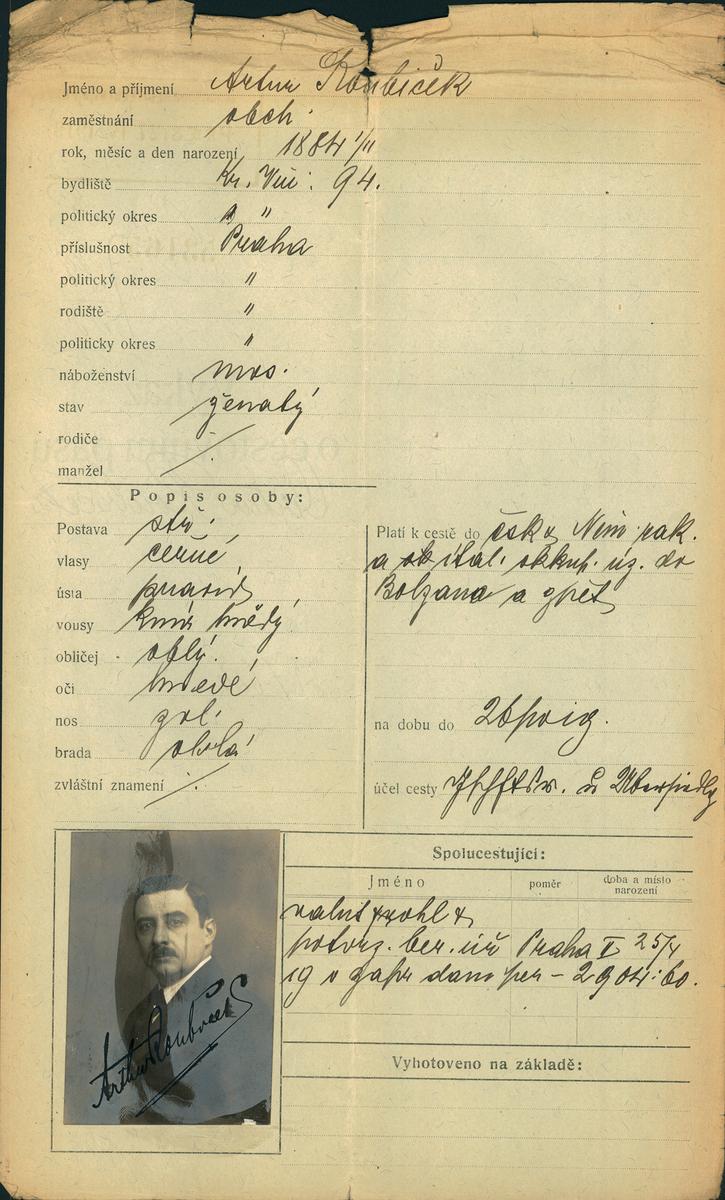 Jméno a příjmení Artur Roubíček
zaměstnání obch.
rok, měsíc a den narození 1884 1/11
bydliště Kr. Vin: 94.
politický okres "
příslušnost Praha
politický okres "
rodiště "
politicky okres "
náboženství mos.
stav ženatý
rodiče
manžel
Popis osoby:
Postava stř.
vlasy černé
ústa pravid
vousy knír hnědý
obličej oblý
oči hnědé
nos
brada oblá
zvláštní znamení
Platí k cestě do čsk Něm. rak.
a ital. okkup. úz. do
Bolzana a zpět
na dobu do
účel cesty
Spolucestující:
Jméno poměr doba a místo narození
potvrz. ber. úř Praha II 25/4
19 o dani per – 2904:60.
Arthur Roubíček
Vyhotoveno na základě: